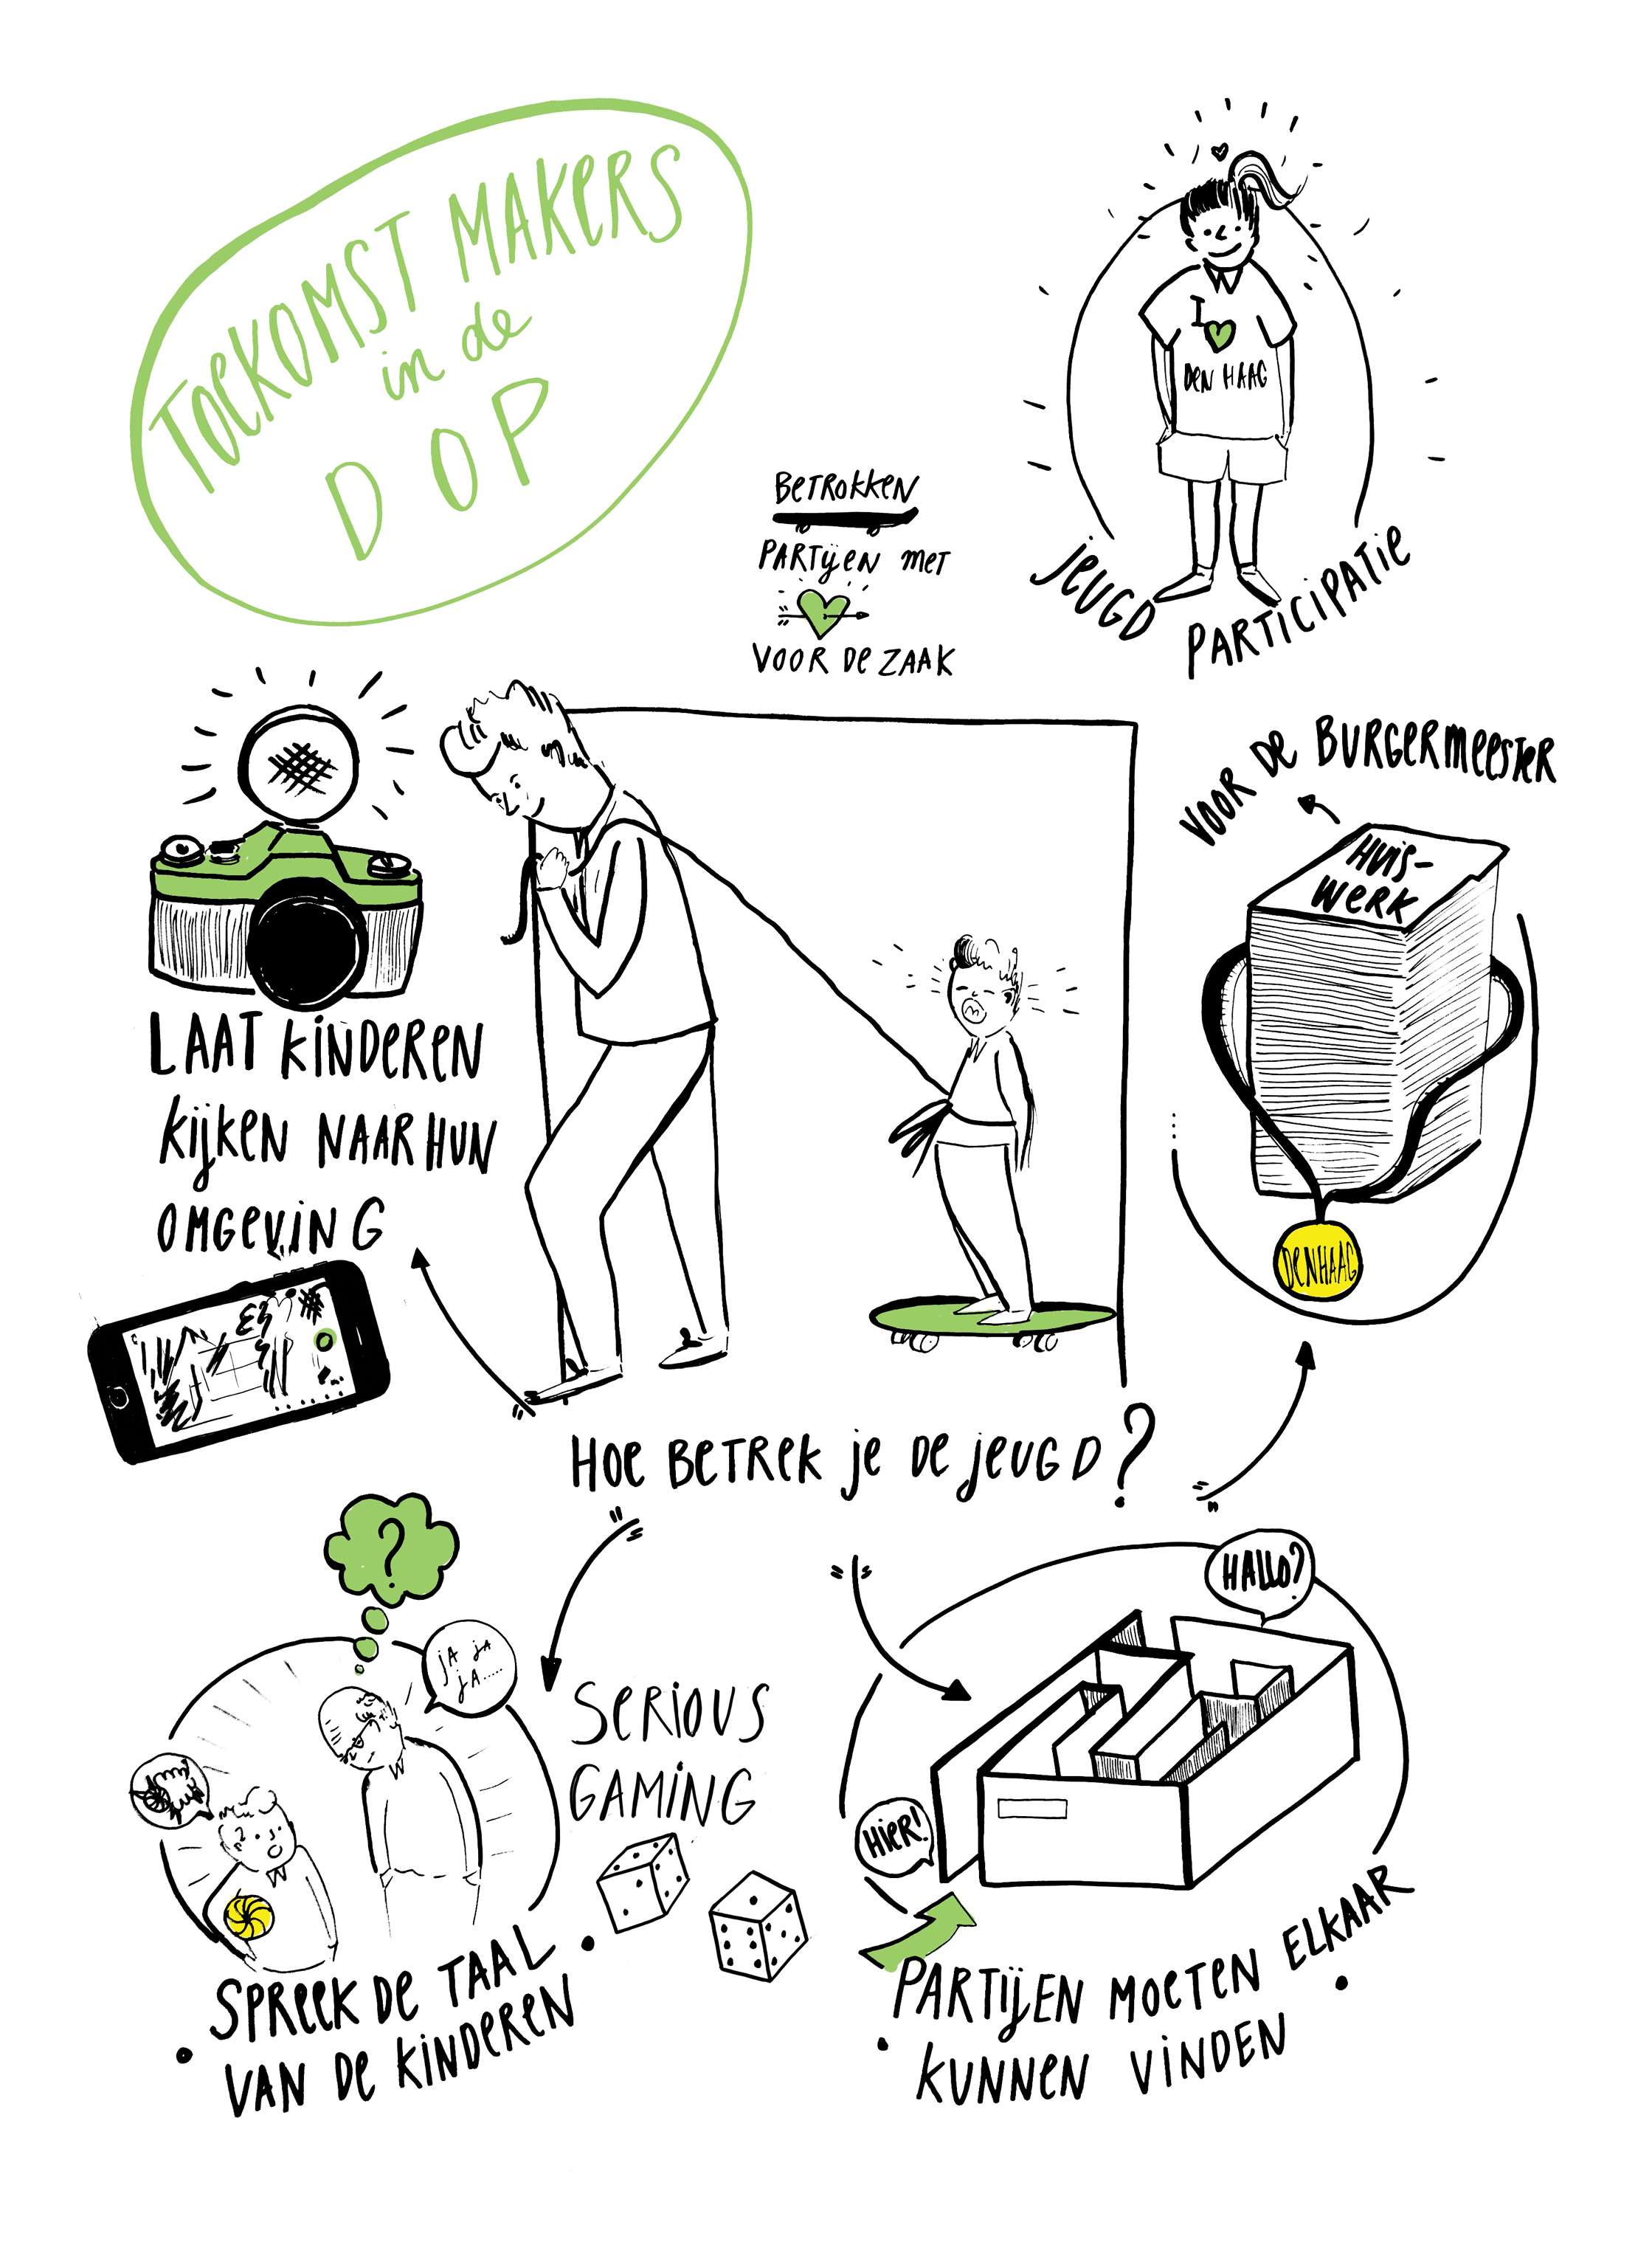 TOEKOMST MAKERS
in de
DOP
I
DEN HAAG
JEUGD PARTICIPATIE
BETROKKEN
PARTIJEN MET
VOOR DE ZAAK
VOOR DE BURGERMEESTER
HUIS-
WERK
DEN HAAG
LAAT KINDEREN
KIJKEN NAAR HUN
OMGEVING
HOE BETREK JE DE JEUGD?
?
JA JA
JA.....
SERIOUS
GAMING
SPREEK DE TAAL
VAN DE KINDEREN
HALLO?
HIER!
PARTIJEN MOETEN ELKAAR
KUNNEN VINDEN